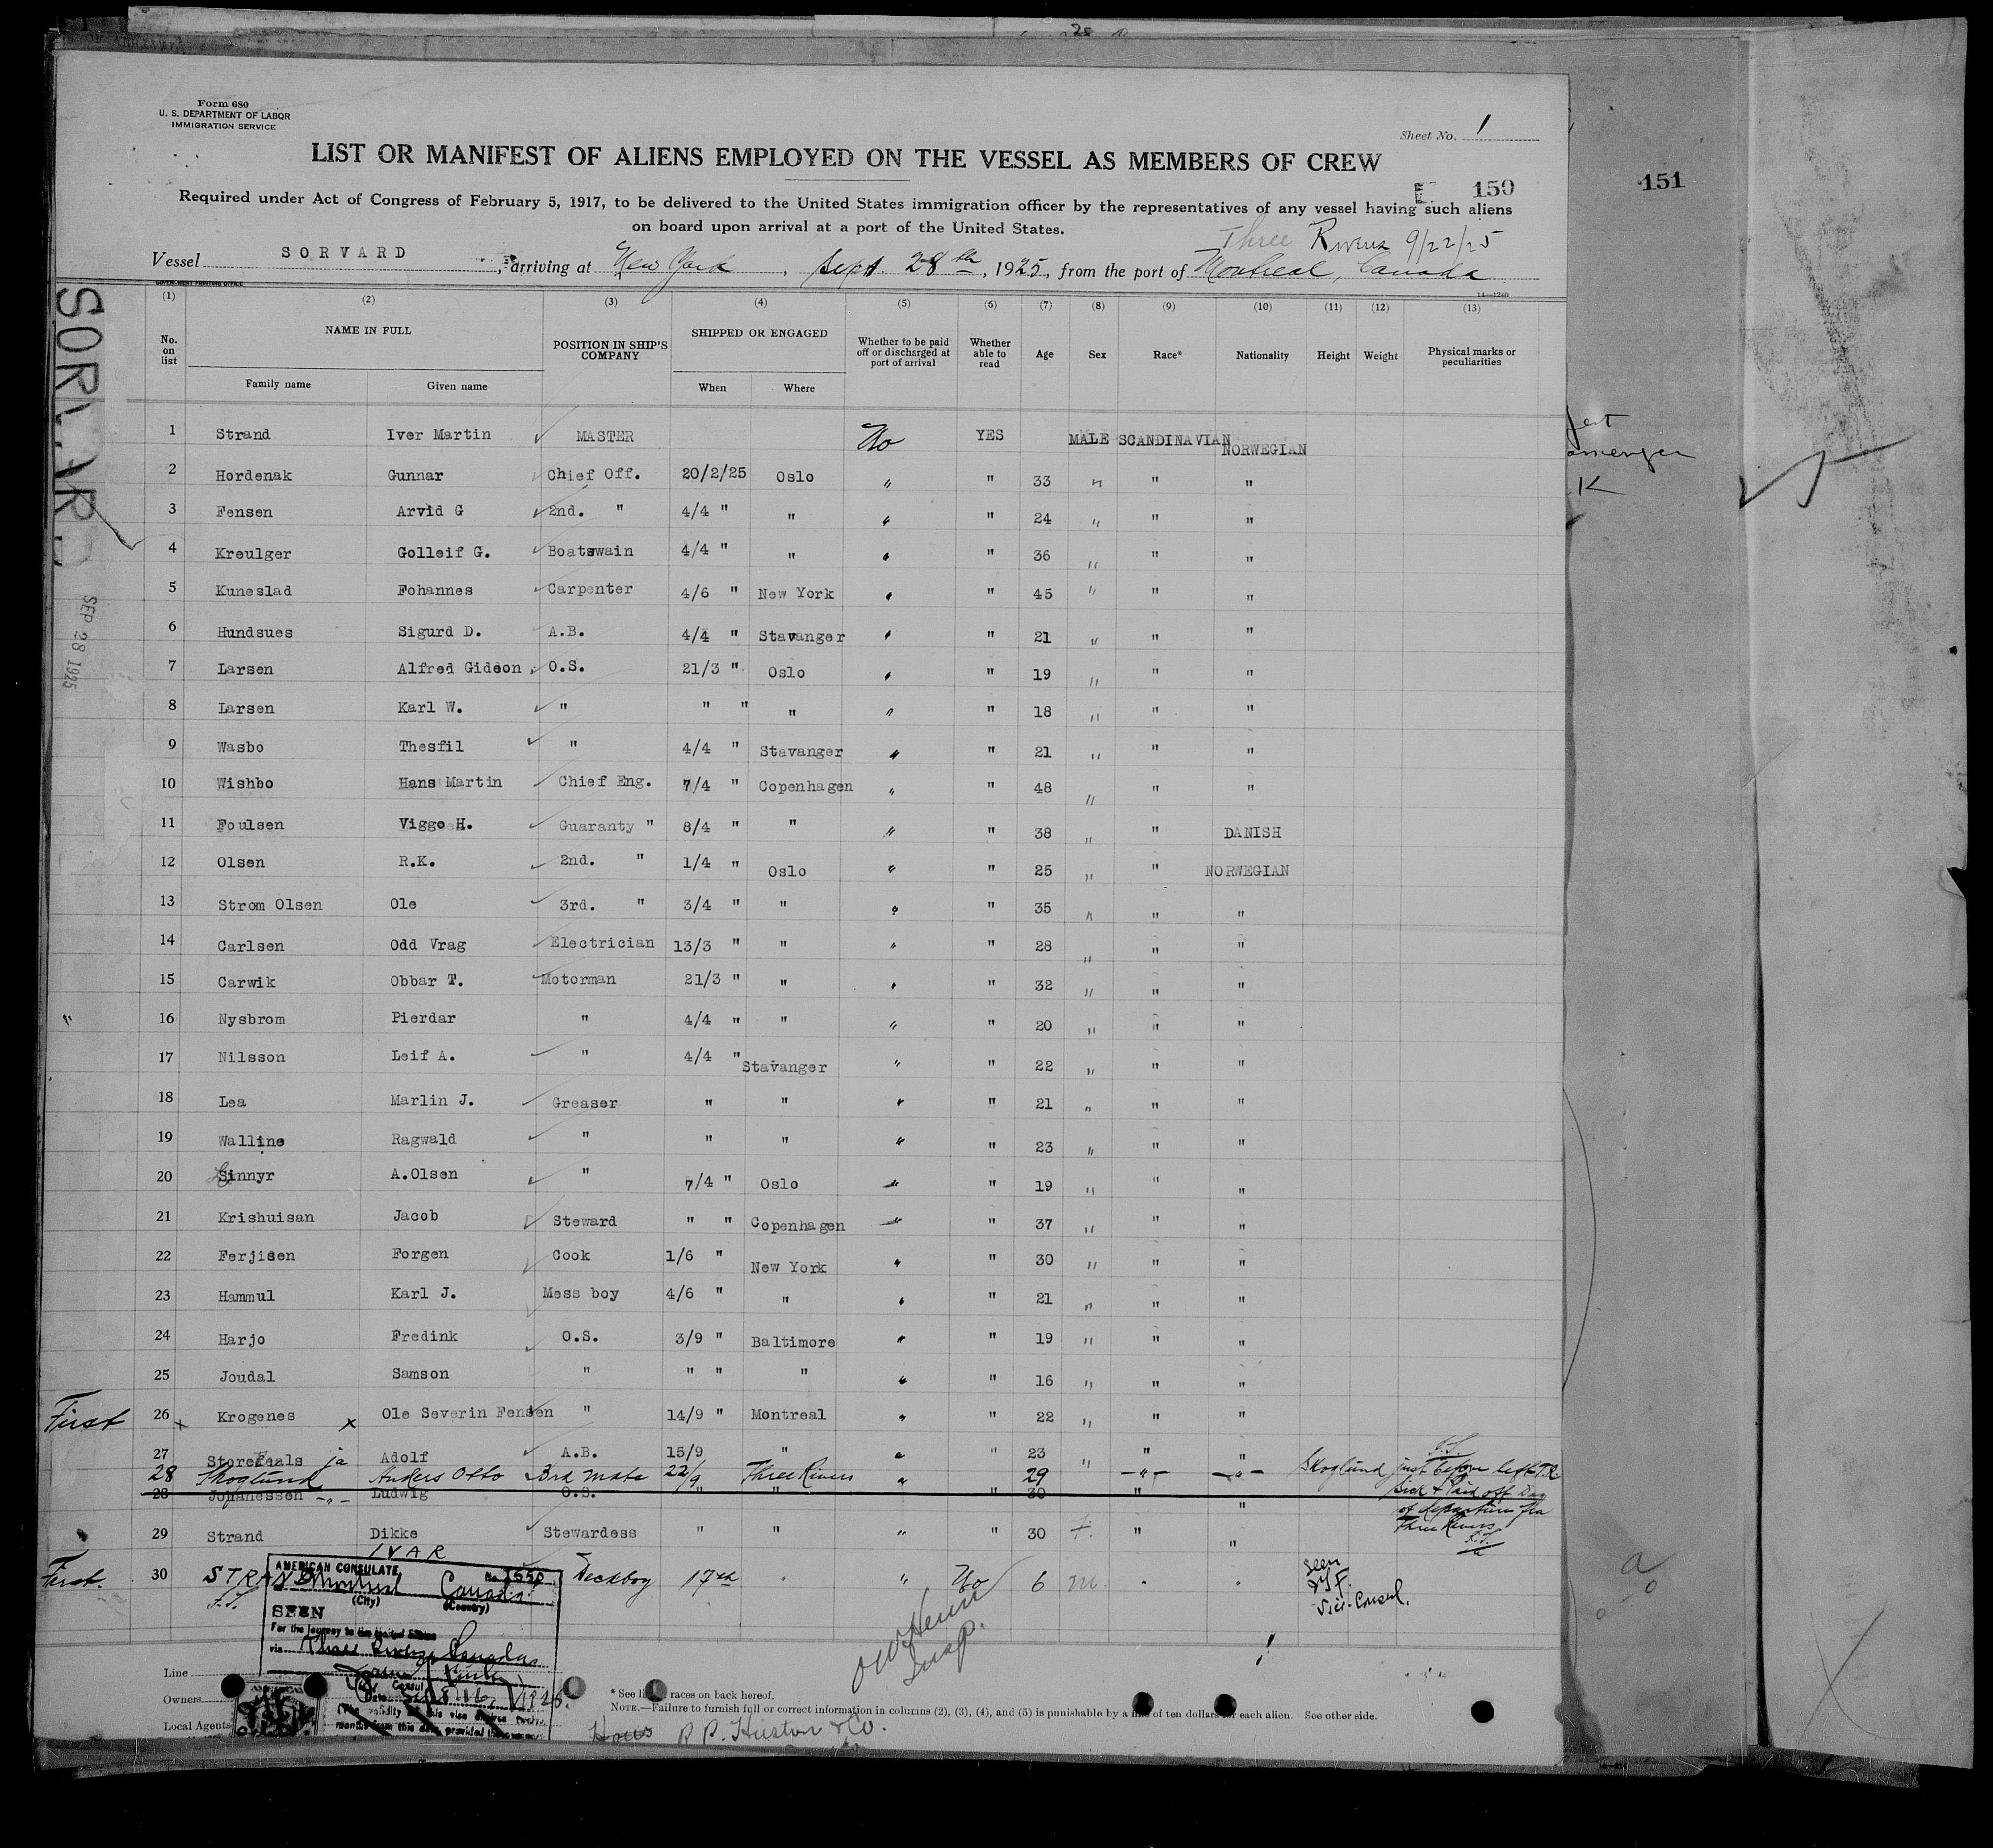 Form 680
U. S. DEPARTMENT OF LABOR
IMMIGRATION SERVICE
Sheet No. 1
LIST OR MANIFEST OF ALIENS EMPLOYED ON THE VESSEL AS MEMBERS OF CREW
150
151
Required under Act of Congress of February 5, 1917, to be delivered to the United States immigration officer by the representatives of any vessel having such aliens
on board upon arrival at a port of the United States.
Three Rivers 9/22/25
Vessel SORVARD, arriving at New York, Sept. 28th, 1925, from the port of Montreal, Canada
GOVERNMENT PRINTING OFFICE
14—1240
SORVARD
SEP 28 1925
(1) (2) (3) (4) (5) (6) (7) (8) (9) (10) (11) (12) (13)
No. on list NAME IN FULL POSITION IN SHIP'S COMPANY SHIPPED OR ENGAGED Whether to be paid off or discharged at port of arrival Whether able to read Age Sex Race* Nationality Height Weight Physical marks or peculiarities
Family name Given name When Where
1 Strand Iver Martin MASTER No YES MALE SCANDINAVIAN NORWEGIAN
2 Hordenak Gunnar Chief Off. 20/2/25 Oslo " " 33 " " "
3 Fensen Arvid G 2nd. " 4/4 " " " " 24 " " "
4 Kreulger Golleif G. Boatswain 4/4 " " " " 36 " " "
5 Kuneslad Fohannes Carpenter 4/6 " New York " " 45 " " "
6 Hundsues Sigurd D. A.B. 4/4 " Stavanger " " 21 " " "
7 Larsen Alfred Gideon O.S. 21/3 " Oslo " " 19 " " "
8 Larsen Karl W. " " " " " " 18 " " "
9 Wasbo Thesfil " 4/4 " Stavanger " " 21 " " "
10 Wishbo Hans Martin Chief Eng. 7/4 " Copenhagen " " 48 " " "
11 Foulsen Viggo H. Guaranty " 8/4 " " " " 38 " " DANISH
12 Olsen R.K. 2nd. " 1/4 " Oslo " " 25 " " NORWEGIAN
13 Strom Olsen Ole 3rd. " 3/4 " " " " 35 " " "
14 Carlsen Odd Vrag Electrician 13/3 " " " " 28 " " "
15 Carwik Obbar T. Motorman 21/3 " " " " 32 " " "
16 Nysbrom Pierdar " 4/4 " " " " 20 " " "
17 Nilsson Leif A. " 4/4 " Stavanger " " 22 " " "
18 Lea Marlin J. Greaser " " " " 21 " " "
19 Walline Ragwald " " " " " 23 " " "
20 Sinnyr A.Olsen " 7/4 " Oslo " " 19 " " "
21 Krishuisan Jacob Steward " " Copenhagen " " 37 " " "
22 Ferjisen Forgen Cook 1/6 " New York " " 30 " " "
23 Hammul Karl J. Mess boy 4/6 " " " " 21 " " "
24 Harjo Fredink O.S. 3/9 " Baltimore " " 19 " " "
25 Joudal Samson " " " " " " 16 " " "
First 26 x Krogenes x Ole Severin Fensen " 14/9 " Montreal " " 22 " " "
27 Adolf A.B. 15/9 " " " 23 " " "
28 Skoglund Anders Otto 3rd mate 22/9 Three Rivers " 29 " " Skoglund just before left T.R.
28 Johanessen Ludwig O.S. " " " 30 " " Sick & Paid off Day
of departure fra
Three Rivers
29 Strand Dikke Stewardess " " " " 30 F. " "
First. 30 STRAND IVAR Deckboy 17th " " No 6 m. " " Seen
Vice-Consul.
AMERICAN CONSULATE
Montreal Canada
(City) (Country)
SEEN
For the journey to the United States
via Three Rivers Canada
Consul
Date
Insp.
Line
Owners
Local Agents
* See list of races on back hereof.
NOTE.—Failure to furnish full or correct information in columns (2), (3), (4), and (5) is punishable by a fine of ten dollars for each alien. See other side.
R. P. Huston & Co.